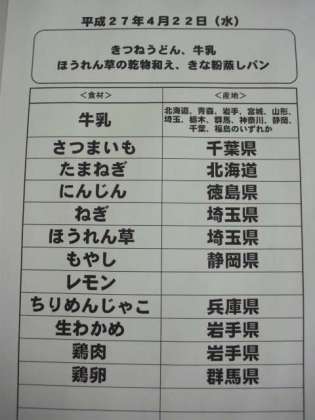 平成２７年４月２２日（水）
きつねうどん、牛乳
ほうれん草の乾物和え、きな粉蒸しパン
＜食材＞ ＜産地＞
牛乳 北海道、青森、岩手、宮城、山形、
埼玉、栃木、群馬、神奈川、静岡、
千葉、福島のいずれか
さつまいも 千葉県
たまねぎ 北海道
にんじん 徳島県
ねぎ 埼玉県
ほうれん草 埼玉県
もやし 静岡県
レモン
ちりめんじゃこ 兵庫県
生わかめ 岩手県
鶏肉 岩手県
鶏卵 群馬県